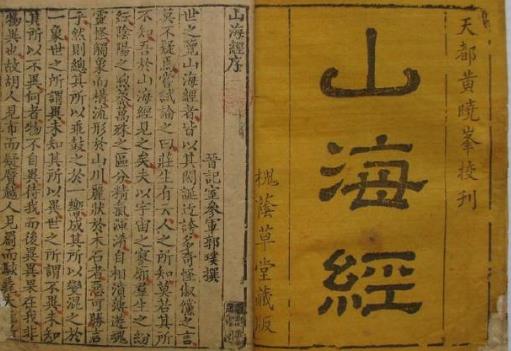 天都黃曉峯校刊
山海經
槐蔭草堂藏版
山海經序
晉記室參軍郭璞撰
世之覽山海經者皆以其閎誕迂誇多奇怪俶儻之言
莫不疑焉嘗試論之曰莊生有云人之所知莫若其所
不知吾於山海經見之矣夫以宇宙之寥廓羣生之紛
紜陰陽之煦蒸萬殊之區分精氣渾淆自相濆薄遊魂
靈怪觸象而構流形於山川麗狀於木石者惡可勝言
乎然則總其所以乖鼓之於一響成其所以變混之於
一象世之所謂異未知其所以異世之所謂不異未知
其所以不異何者物不自異待我而後異異果在我非
物異也故胡人見布而疑黂越人見罽而駭毳夫